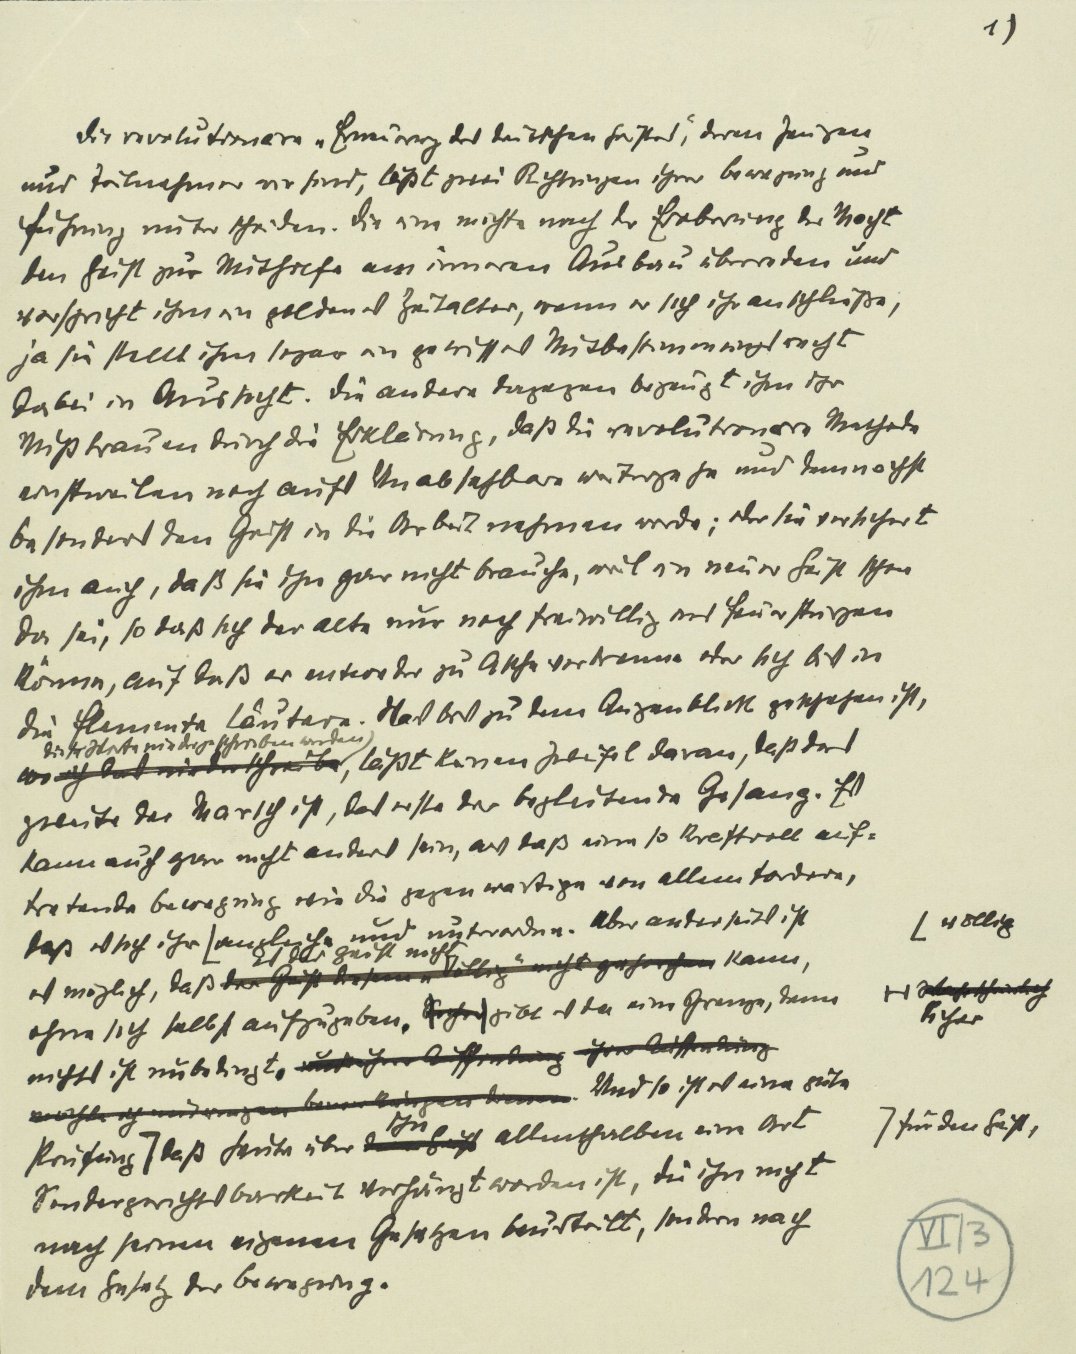 1)
Die revolutionäre „Erneuerung des deutschen Geistes", deren Zeugen
und Teilnehmer wir sind, läßt zwei Richtungen ihrer Bewegung und
Führung unterscheiden. Die eine möchte nach der Eroberung der Macht
den Geist zur Mithilfe am inneren Ausbau überreden und
verspricht ihm ein goldenes Zeitalter, wenn er sich ihr anschließe,
ja sie stellt ihm sogar ein gewisses Mitbestimmungsrecht
dabei in Aussicht. Die andere dagegen bezeugt ihm ihr
Mißtrauen durch die Erklärung, daß die revolutionäre Methode
einstweilen noch aufs Unabsehbare weitergehe und demnächst
besonders den Geist in die Arbeit nehmen werde; oder sie versichert
ihm auch, daß sie ihn gar nicht brauche, weil ein neuer Geist schon
da sei, so daß sich der alte nur noch freiwillig ins Feuer stürzen
könne, auf daß er entweder zu Asche verbrenne oder sich bis in
die Elemente läutere. Was bis zu dem Augenblick geschehen ist,
diese Worte niedergeschrieben werden
wo ich das niederschreibe, läßt keinen Zweifel daran, daß das
zweite der Marsch ist, das erste der begleitende Gesang. Es
kann auch gar nicht anders sein, als daß eine so kraftvoll auf=
tretende Bewegung wie die gegenwärtige von allem fordere,
daß es sich ihr [angleiche und unterordne. Aber anderseits ist [völlig
es der Geist nicht
es möglich, daß der Geist diesem „völlig" nicht gehorchen kann,
ohne sich selbst aufzugeben. gibt es da eine Grenze, denn
sicher
nichts ist unbedingt. ihre Auffindung
Und so ist es eine gute
ihn
Prüfung] daß heute über den Geist allenthalben eine Art ] für den Geist,
Sondergerichtsbarkeit verhängt worden ist, die ihn nicht
nach seinen eigenen Gesetzen beurteilt, sondern nach
dem Gesetz der Bewegung.
VI/3
124